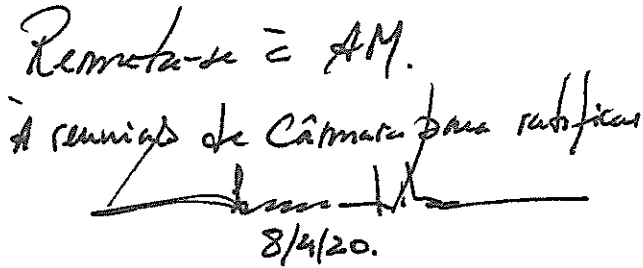 Remeta-se à AM.
À reunião de Câmara para ratificar
8/4/20.